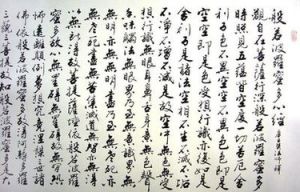 般若波羅蜜多心經
觀自在菩薩行深般若波羅蜜多
時照見五蘊皆空度一切苦厄
舍利子色不異空空不異色色即是
空空即是色受想行識亦復如是
舍利子是諸法空相不生不滅
不垢不淨不增不減是故空中無色無受
想行識無眼耳鼻舌身意無色聲
香味觸法無眼界乃至
無意識界無無明亦無無明盡乃至無
老死亦無老死盡無苦集滅道無智亦無
得以無所得故菩提薩埵依般若波羅
蜜多故心無罣礙無罣礙故無有恐
怖遠離顛倒夢想究竟涅槃三世諸
佛依般若波羅蜜多故得阿耨多羅
三藐三菩提故知般若波羅蜜多是大